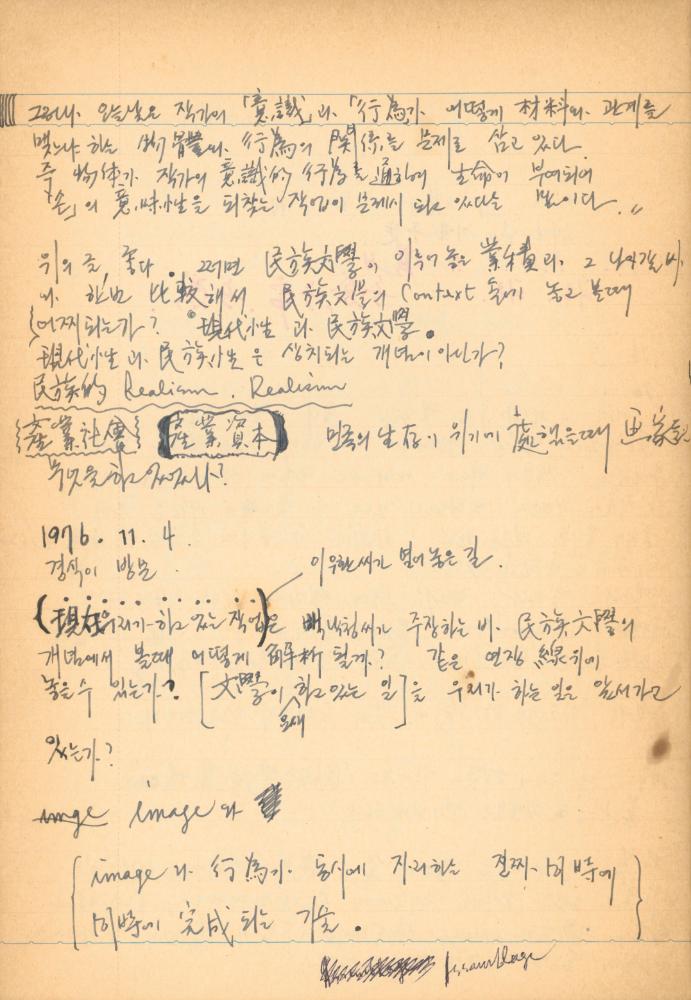 그러나, 오늘날은 작가의 「意識」과, 「行為」가 어떻게 材料와 관계를
맺느냐 하는 物體와, 行為의 関係를 문제로 삼고 있다
즉 物体가 작가의 意識的 行為를 通하여 生命이 부여되어
「손」의 意味性을 되찾는 작업이 문제시 되고 있다는 것이다. "
위의 글, 좋다. 그러면 民族文學이 이루어 놓은 業績과, 그 나아갈 바
와 한번 比較해서 民族文学의 Context 놓고 볼때
어찌 되는가? 現代性과 民族文學.
現代性과 民族性은 상치되는 개념이 아닌가?
民族的 Realism, Realism
産業社會 産業資本 민족의 生存이 위기에 處했을때 画家는
무엇을 하고 있었나?
1976. 11. 4.
경식이 방문
이우환씨가 열어 놓은 길.
(現在 우리가 하고 있는 작업)은 백낙청씨가 주장하는 바, 民族文學의
개념에서 볼때 어떻게 解析될까? 같은 연장 線위에
놓을 수 있는가? [文學이 하고 있는 일]을 우리가 하는 일은 앞서가고
요새
있는가?
image image 와
image 가 行為가 동시에 자리하는 同時에
同時에 完成되는 기술.